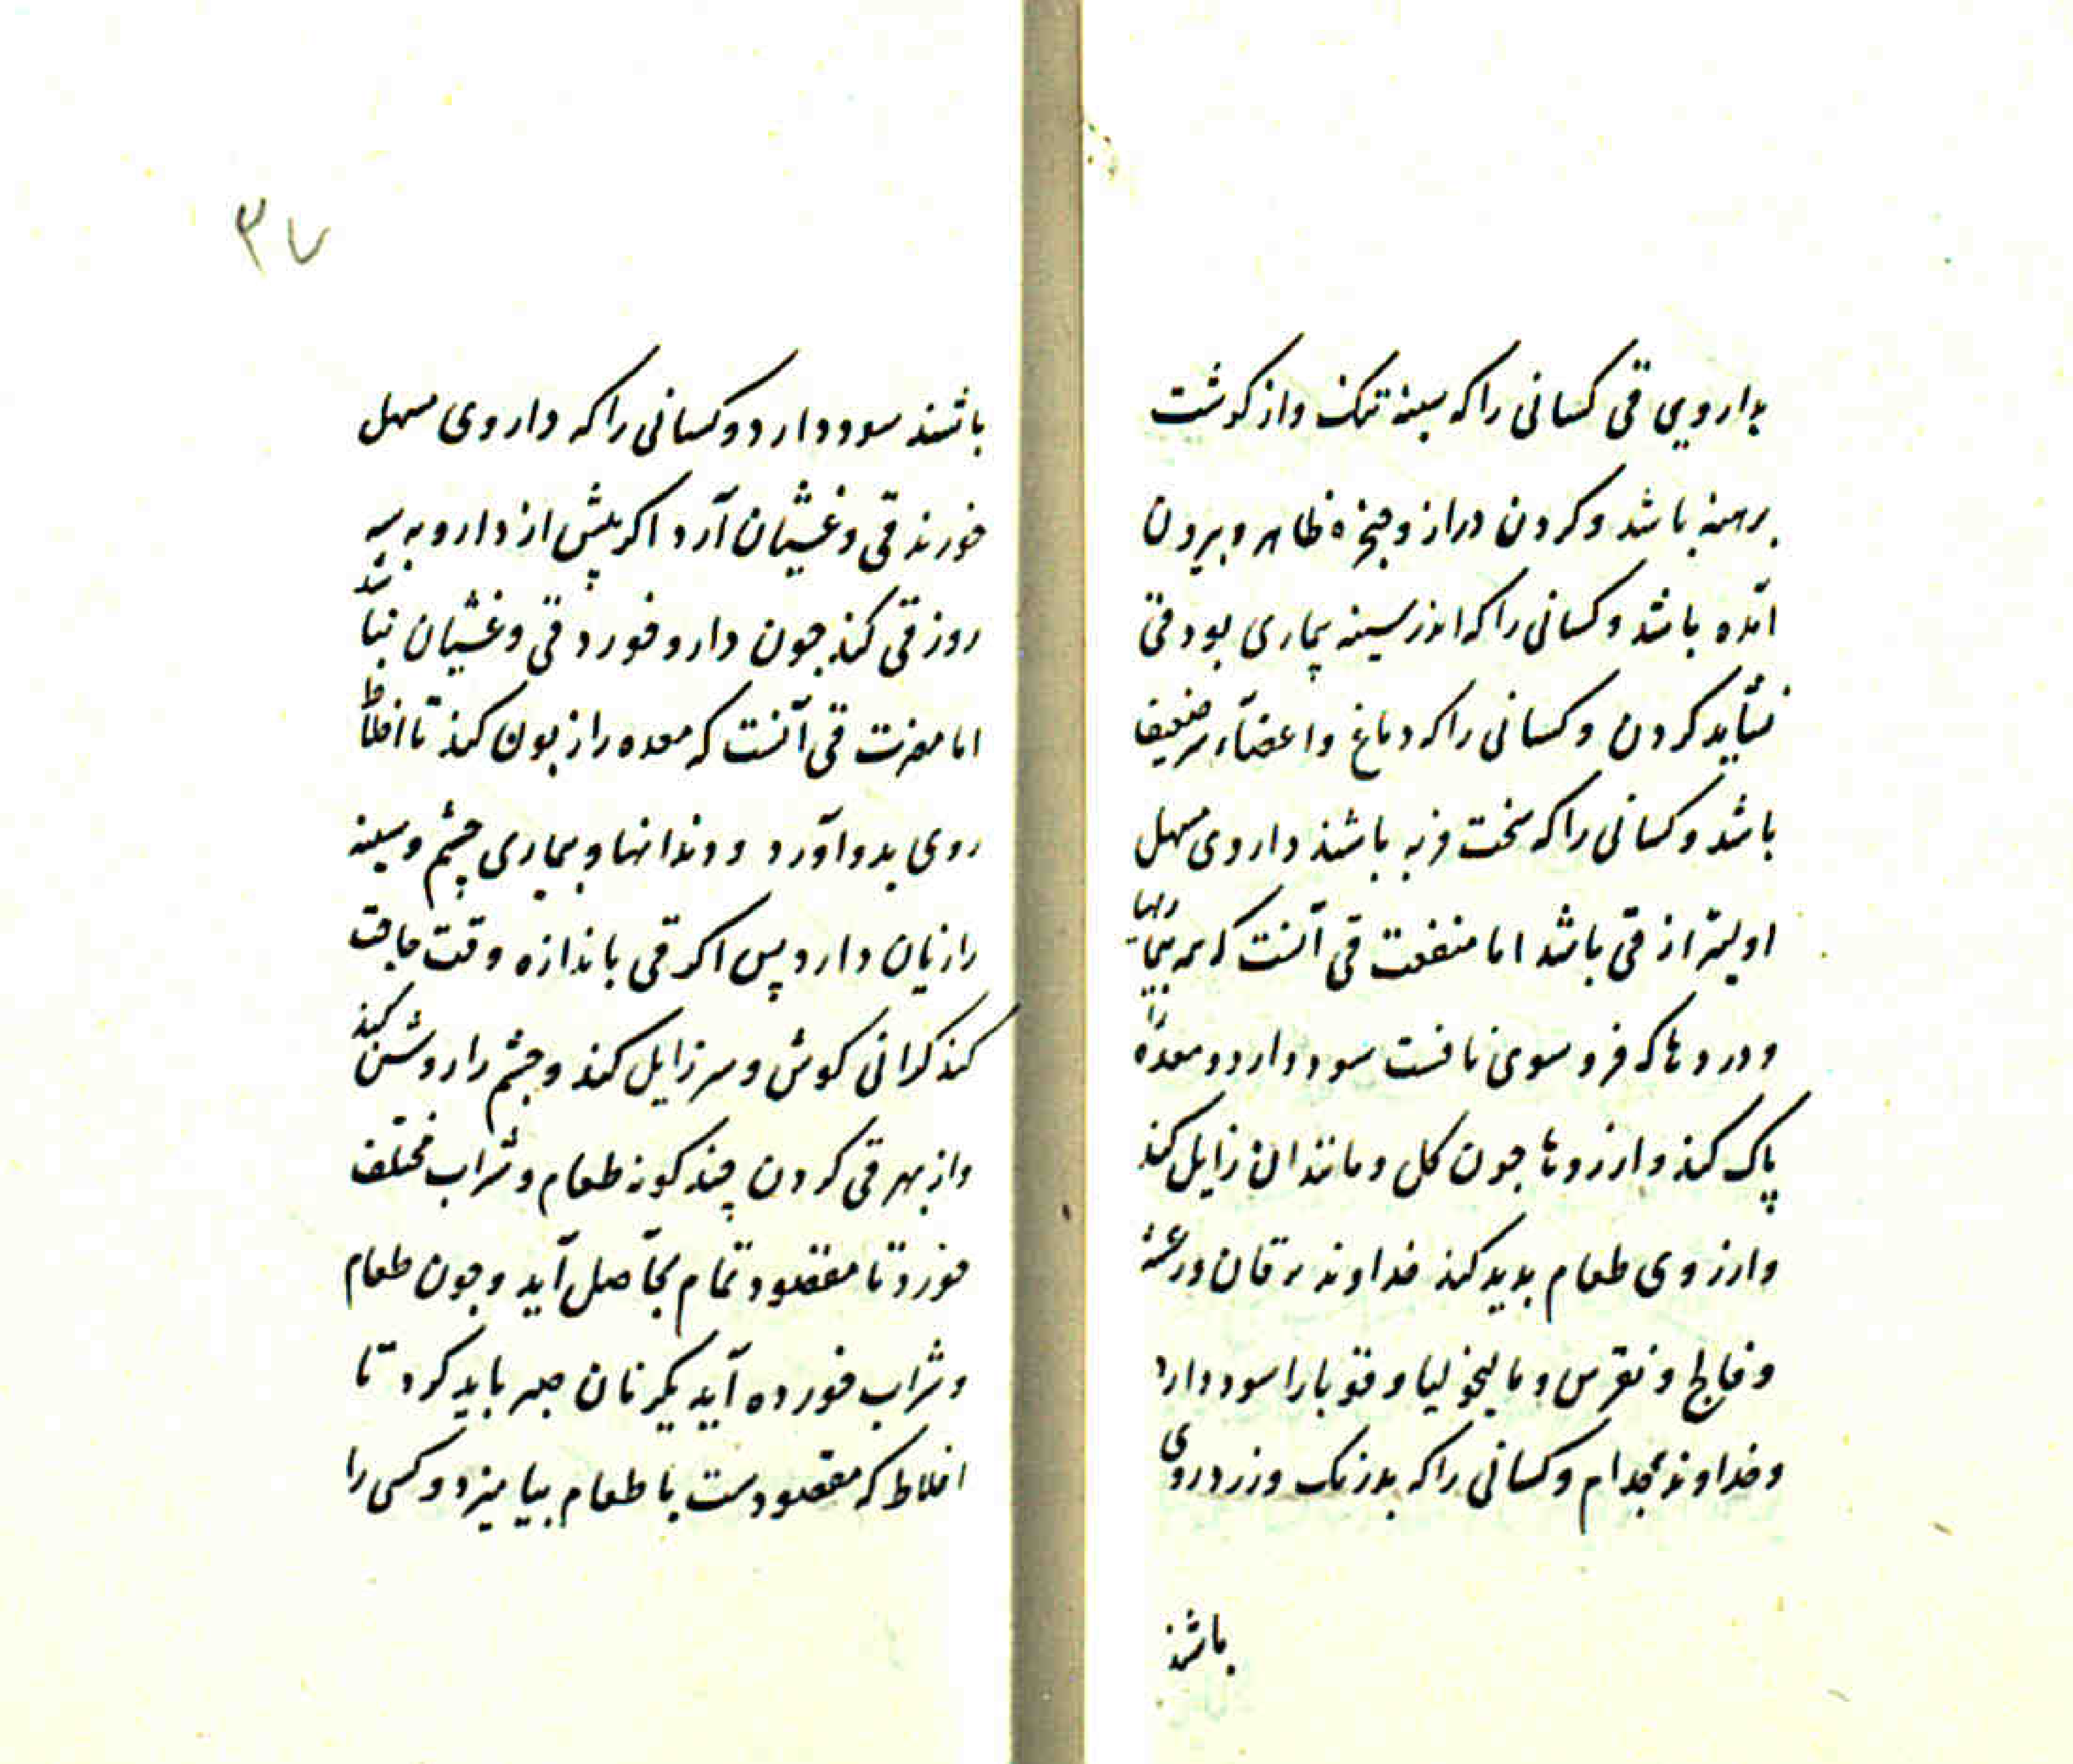 بدارویی قی کسانی را که سینه تنک و از کوشت
برهنه باشد و کردن دراز و حنجره ظاهر و بیرون
آمده باشد و کسانی را که اندر سینه بیماری بود قی
نباید کردن و کسانی را که دماغ و اعضاء سر ضعیف
باشد و کسانی را که سخت فربه باشند داروی مسهل
اولیتر از قی باشد اما منفعت قی آنست که همه بیماریها
و دردها که فروسوی نافست سود دارد و معده را
پاک کند و ارزوها جون کل و مانند ان زایل کند
و ارزوی طعام بدید کند خداوند یرقان و رعشه
و فالج و نقرس و مالیخولیا و قوبا را سود دارد
و خداوند جدام و کسانی را که بدرنک و زردروی
باشند
۳۷
باشند سود دارد و کسانی را که داروی مسهل
خورند قی و غشیان آرد اکر پیش از دارو به سه
روز قی کند جون دارو خورد قی و غشیان نباشد
اما مضرت قی آنست که معده را زبون کند تا اخلاط
روی بدو آورد و دندانها و بیماری چشم و سینه
را زیان دارد پس اکر قی باندازه وقت حاجت
کند کرانی کوش و سر زایل کند و چشم را روشن کند
و از بهر قی کردن چند کونه طعام و شراب مختلف
خورد تا مقصود تمام بحاصل آید و جون طعام
و شراب خورده آید یکزمان صبر باید کرد تا
اخلاط که مقصودست با طعام بیامیزد و کسی را